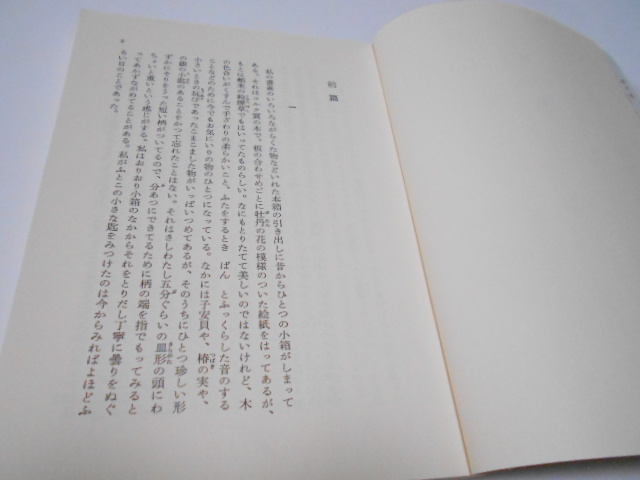 前篇
一
私の書斎のいろいろながらくた物などいれた本箱の引き出しに昔からひとつの小箱がしまって
ある。それはコルク質の木で、板の合わせめごとに牡丹の花の模様のついた絵紙をはってあるが、
もとは舶来の粉煙草でもはいってたものらしい。なにもとりたてて美しいのではないけれど、木
の色合いがくすんで手ざわりの柔らかいこと、ふたをするとき ぱん とふっくらした音のする
ことなどのために今でもお気にいりの物のひとつになっている。なかには子安貝や、椿の実や、
小さいときの玩びであったこまこました物がいっぱいつめてあるが、そのうちにひとつ珍しい形
の銀の小匙のあることをかつて忘れたことはない。それはさしわたし五分ぐらいの皿形の頭にわ
ずかにそりをうった短い柄がついてるので、分あつにできてるために柄の端を指でもってみると
ちょいと重いという感じがする。私はおりおり小箱のなかからそれをとりだし丁寧に曇りをぬぐ
ってあかずながめてることがある。私がふとこの小さな匙をみつけたのは今からみればよほどふ
るい日のことであった。